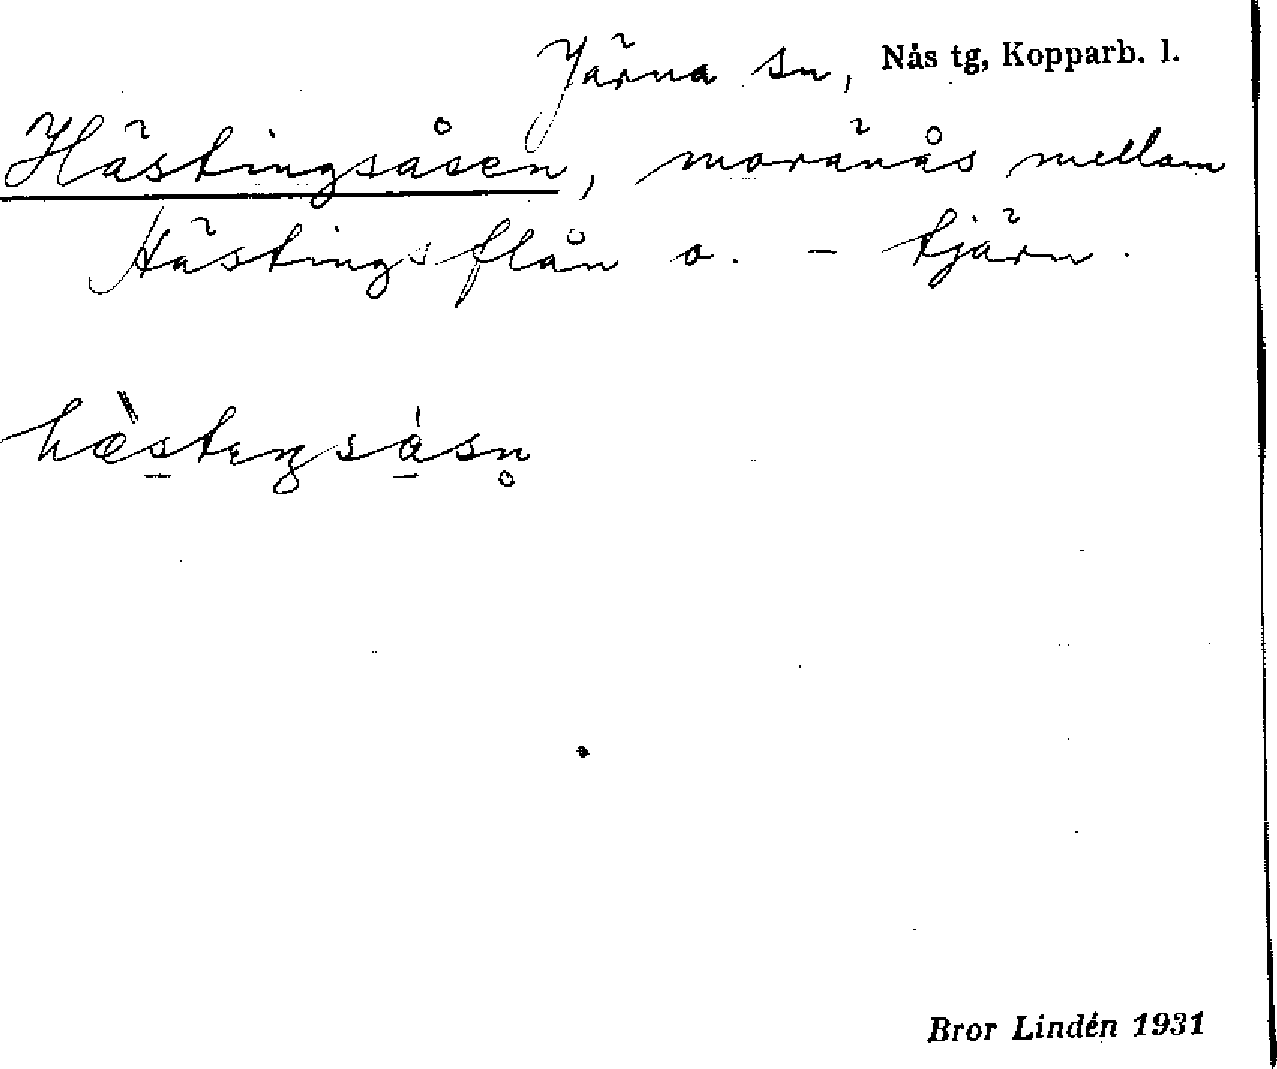 Järna sn, Nås tg, Kopparb. l.
Hästingsåsen, moränås mellan
Hästingsflån o. - tjärn.
Bror Lindén 1931